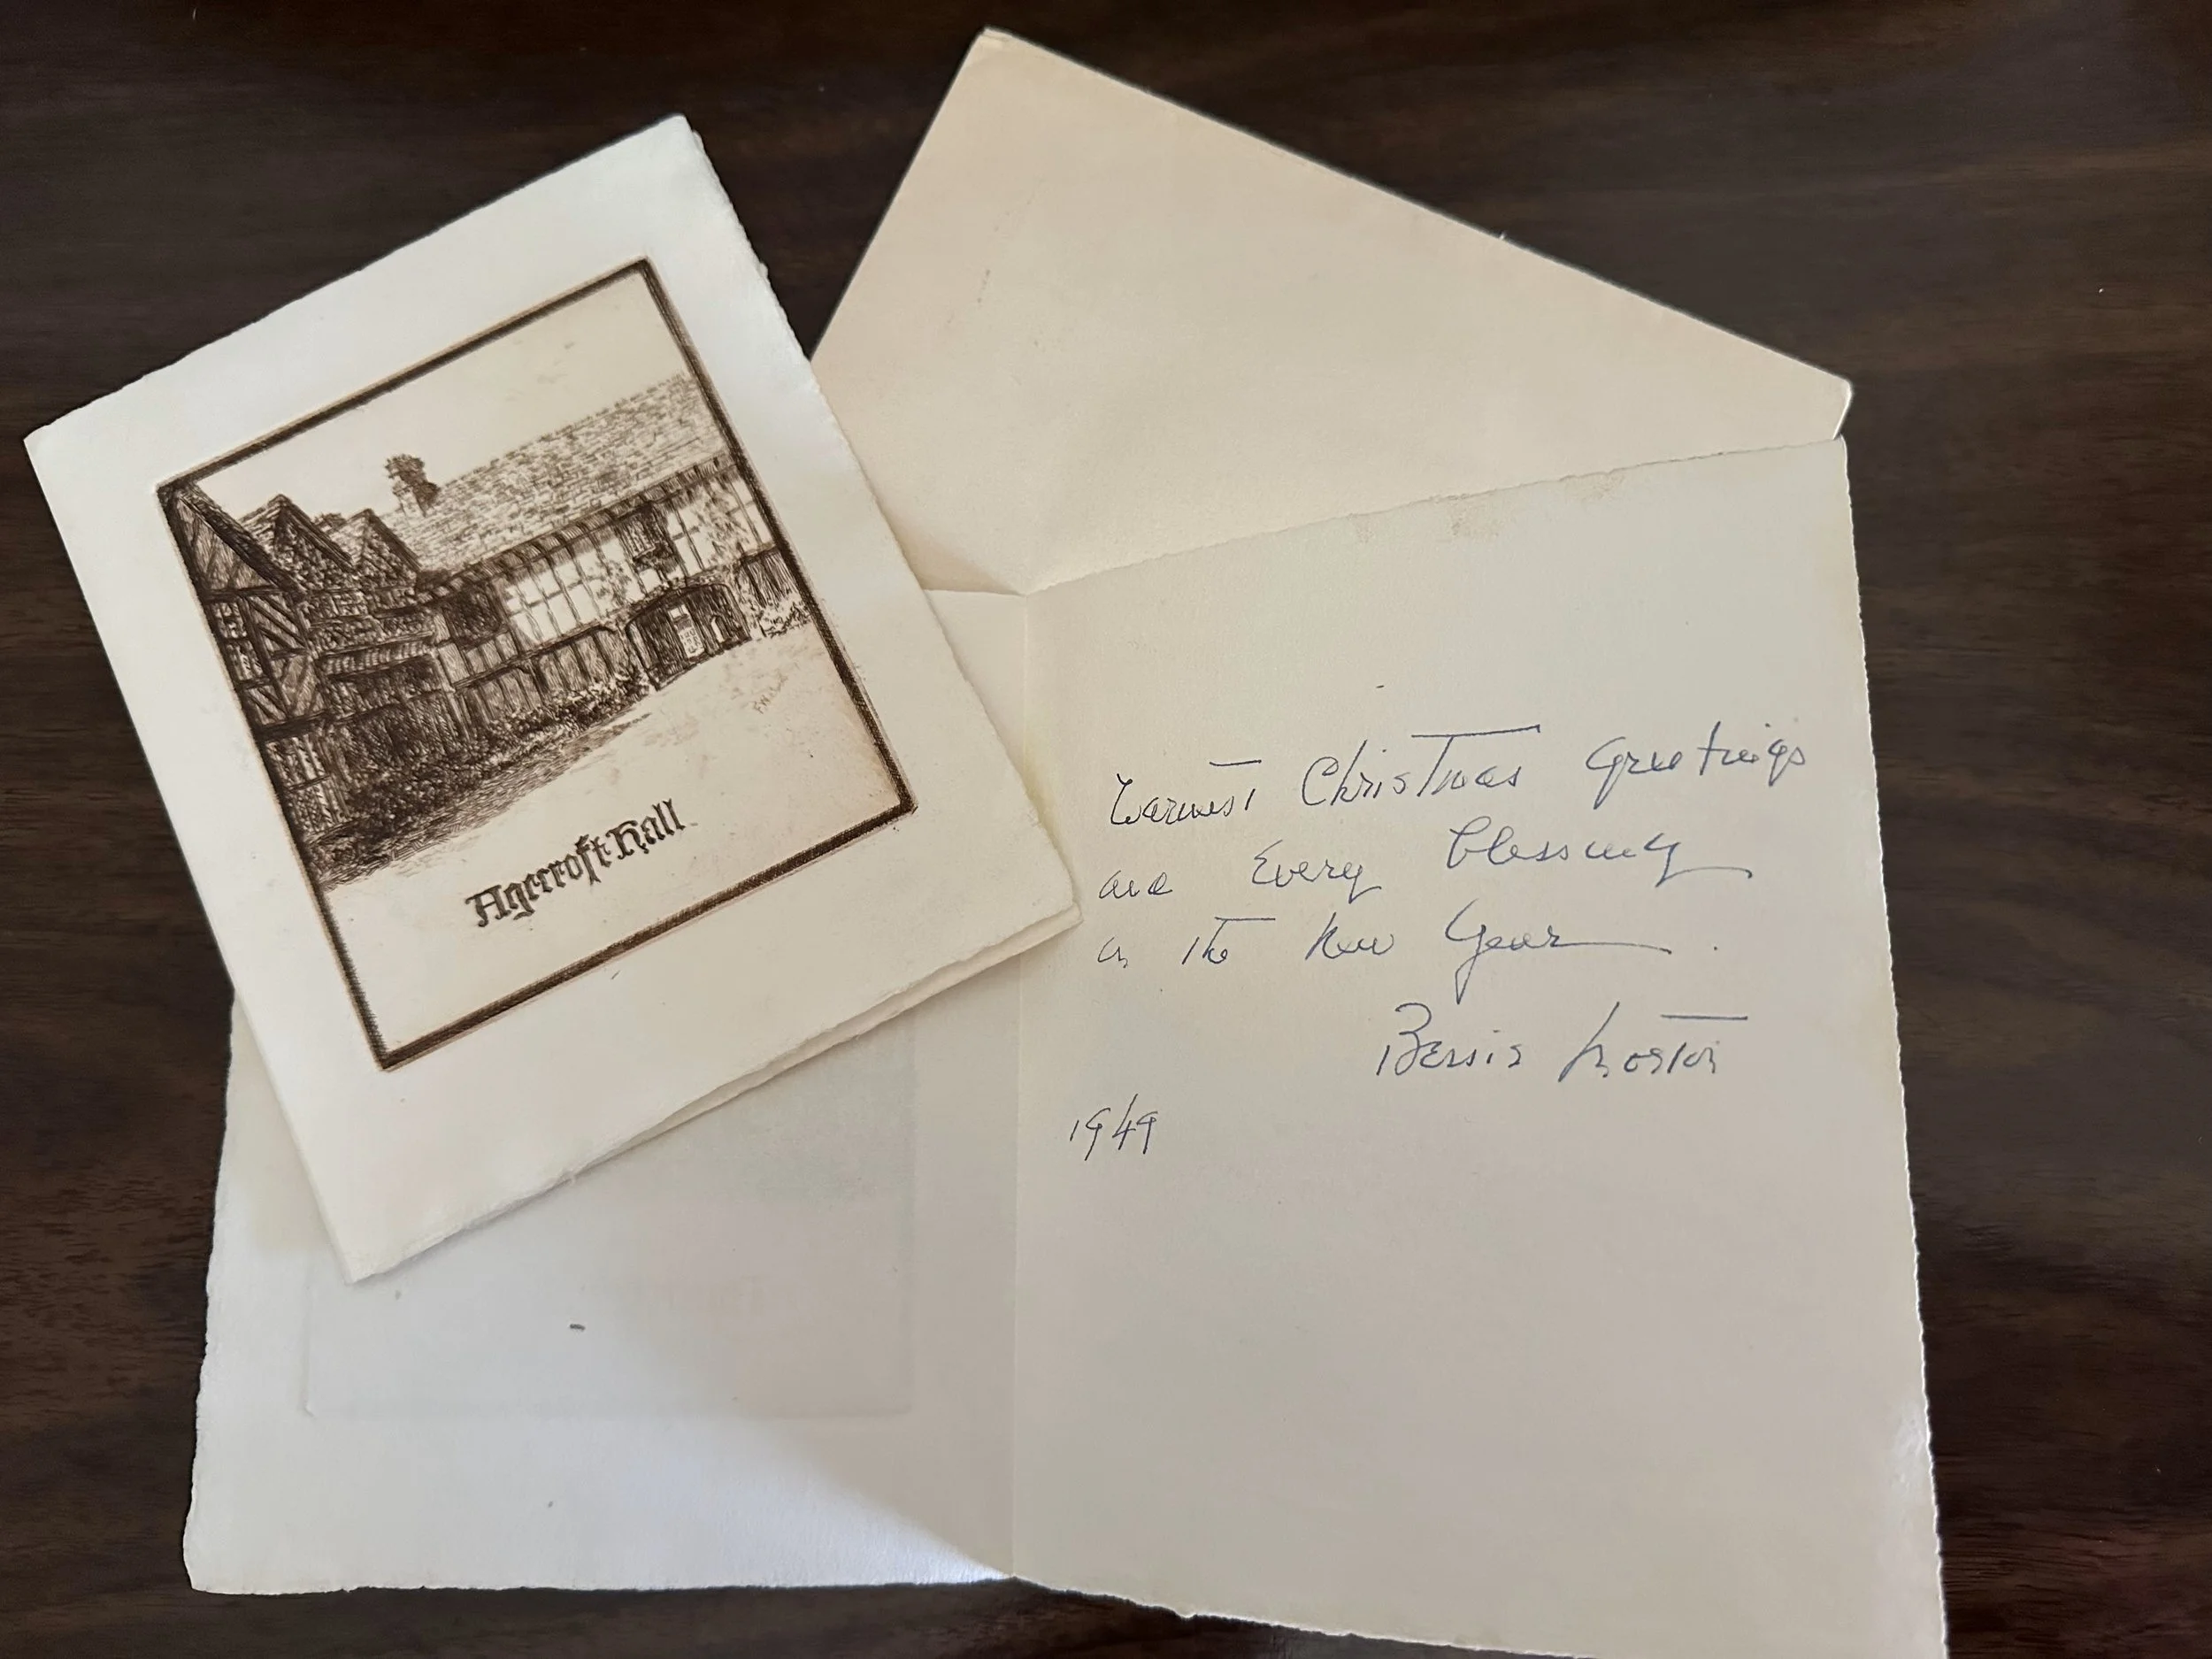 Agecroft Hall
Warmest Christmas Greetings
and Every blessing
in the New Year.
Bessie Morton
1949